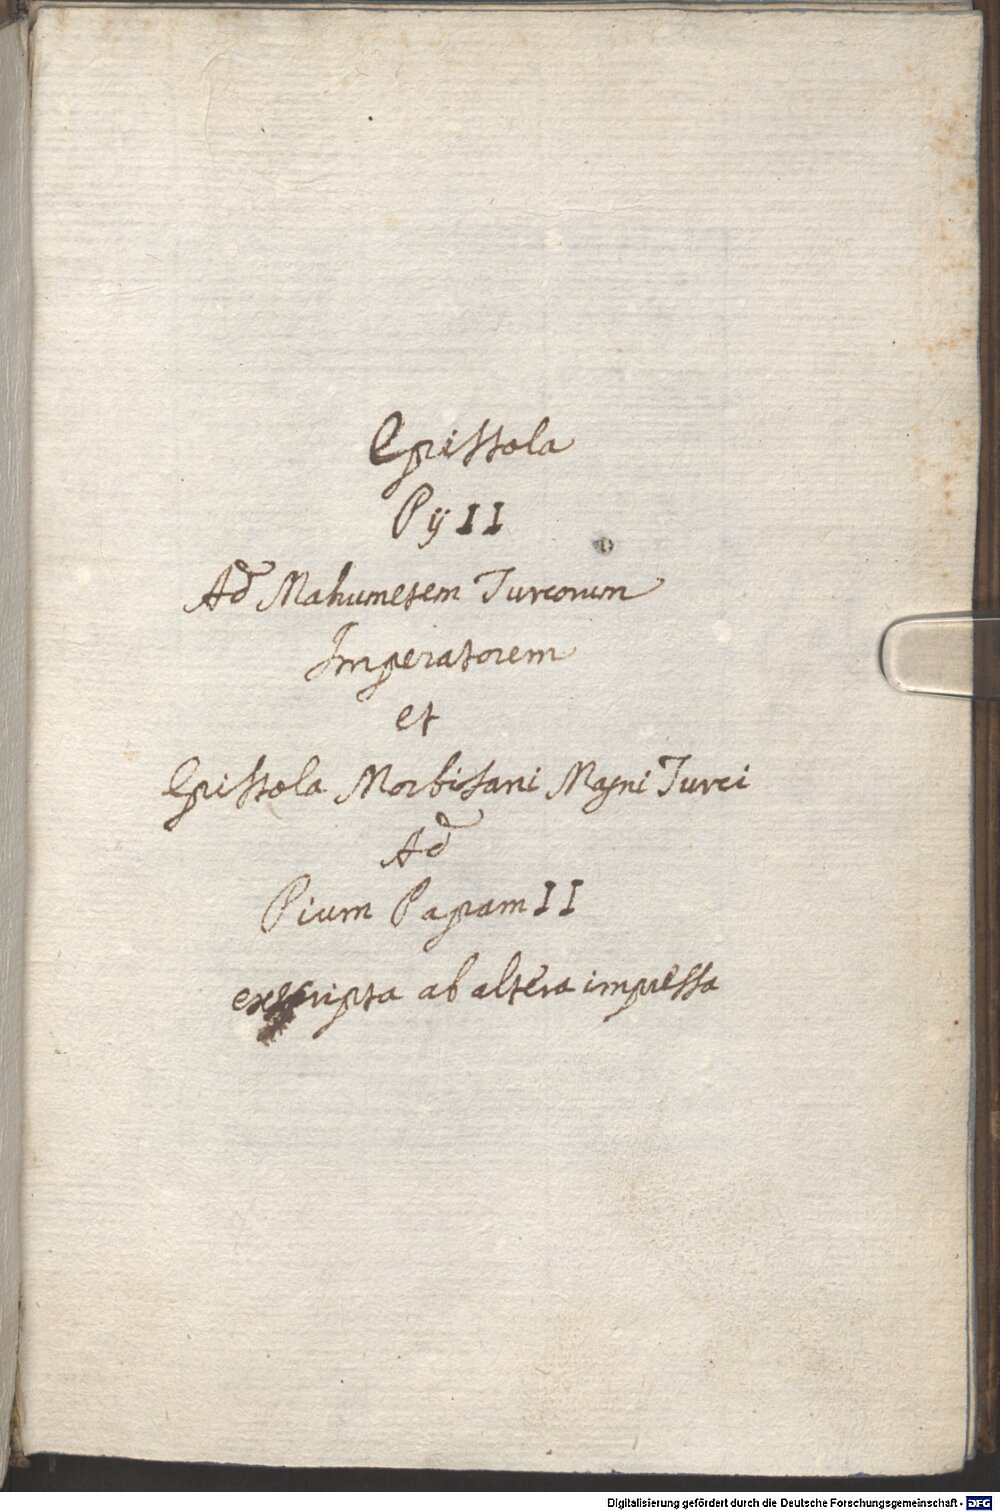 Epistola
Pij II
Ad Mahumetem Turcorum
Imperatorem
et
Epistola Morbisani Magni Turci
Ad
Pium Papam II
exscripta ab altera impressa
Digitalisierung gefördert durch die Deutsche Forschungsgemeinschaft - DFG